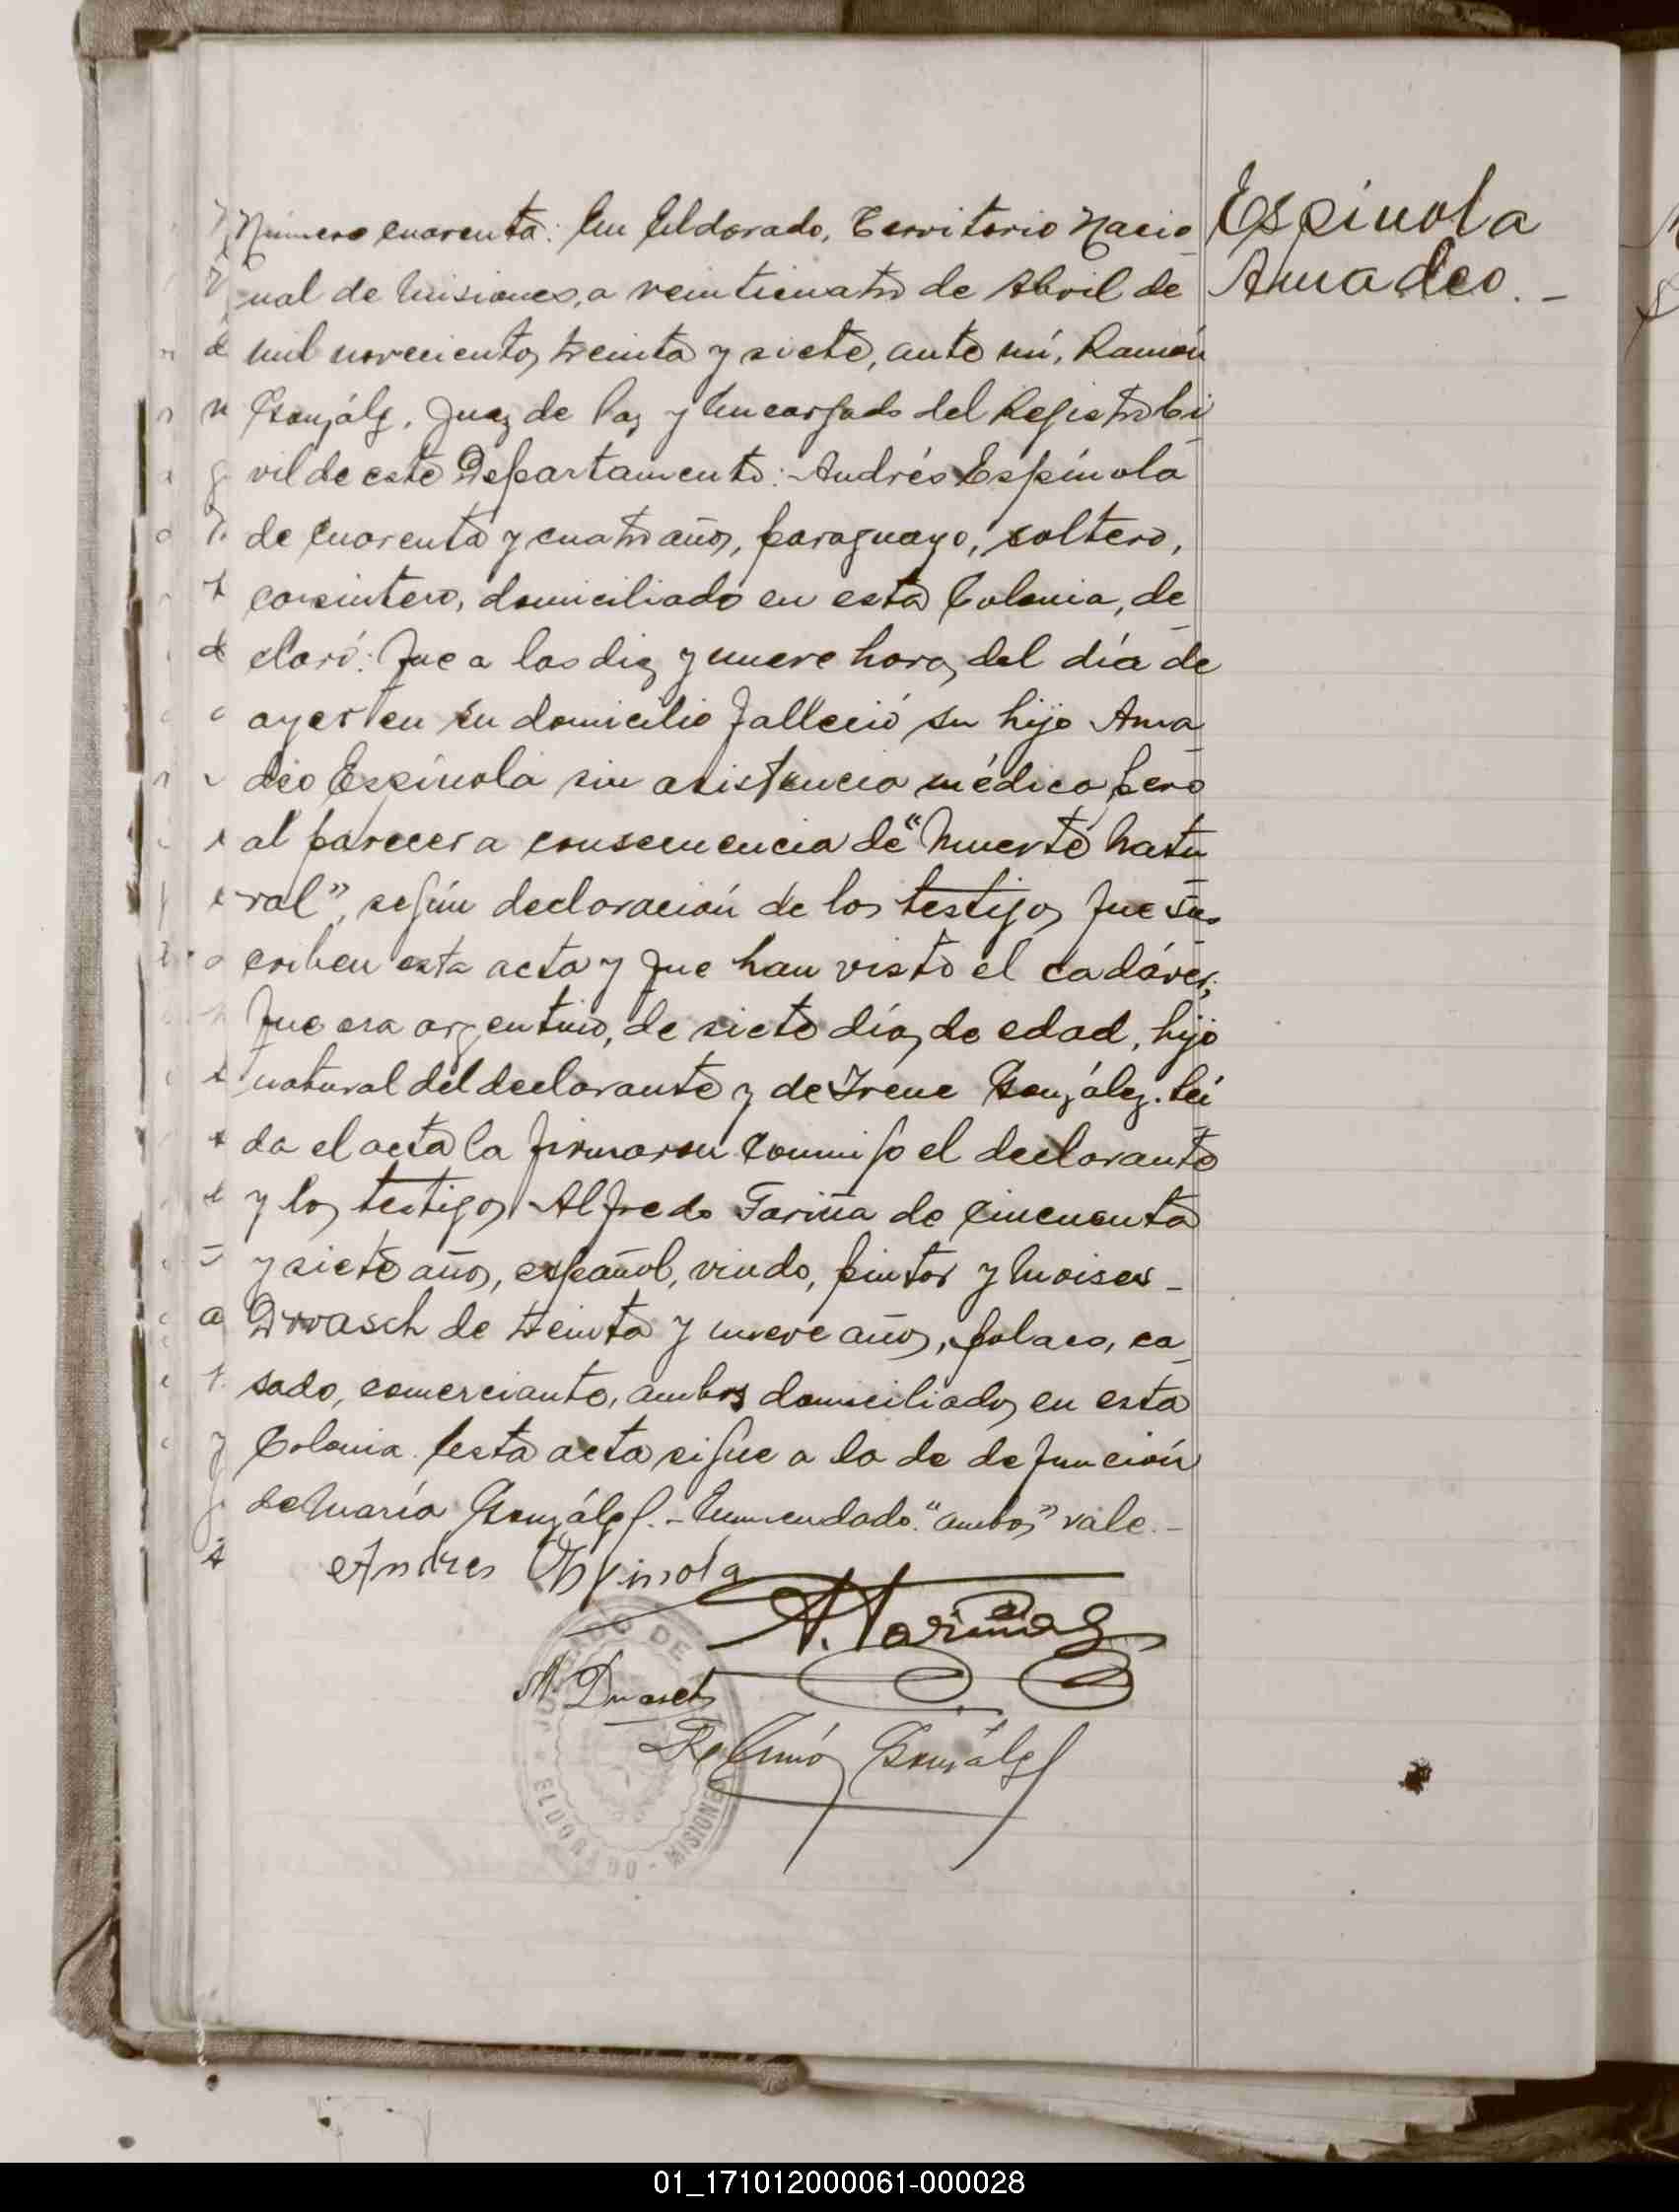 Espínola
Amadeo. -
Número cuarenta: En Eldorado, Territorio Nacio-
nal de Misiones, a veinticuatro de Abril de
mil novecientos treinta y siete, ante mí, Ramón
González, Juez de Paz y Encargado del Registro Ci-
vil de este Departamento: Andrés Espínola
de cuarenta y cuatro años, paraguayo, soltero,
carpintero, domiciliado en esta Colonia, de-
claró: Que a las diez y nueve horas del día de
ayer en su domicilio falleció su hijo Ama-
deo Espínola sin asistencia médica pero
al parecer a consecuencia de "Muerte Natu-
ral", según declaración de los testigos que sus-
criben esta acta y que han visto el cadáver;
Que era argentino, de siete días de edad, hijo
natural del declarante y de Irene González. Leí-
da el acta la firmaron conmigo el declarante
y los testigos Alfredo Fariña de cincuenta
y siete años, español, viudo, pintor y Moises -
Drwasch de treinta y nueve años, polaco, ca-
sado, comerciante, ambos domiciliados en esta
Colonia. Esta acta sigue a la de defunción
de María González. - Enmendado: "ambos" vale. -
Andres Espinola
A. Fariña
M. Drwasch
Ramón González
JUZGADO DE PAZ
ELDORADO - MISIONES
01_171012000061-000028